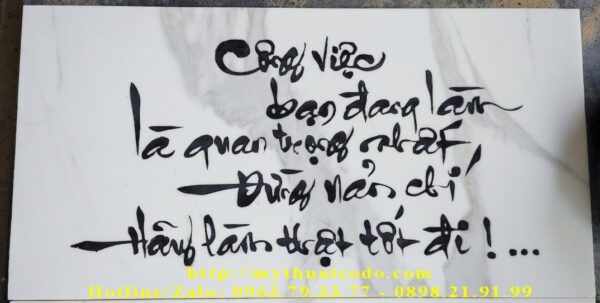 Công việc
bạn đang làm
là quan trọng nhất,
Đừng nản chí
Hãy làm thật tốt đi ! ...
http://mythuatcodo.com/
Hotline/Zalo: 0963.79.33.77 - 0898.21.91.99